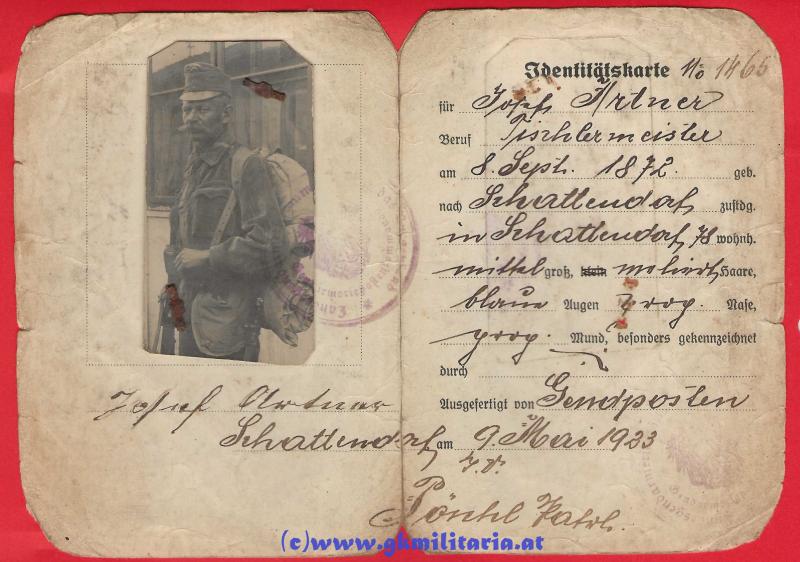 Josef Artner
Schattendorf
Identitätskarte No 1465
für Josef Artner
Beruf Tischlermeister
am 8. Sept. 1872. geb.
nach Schattendorf zustdg.
in Schattendorf, 78 wohnh.
mittel groß, klein meliert Haare,
blaue Augen prop. Nase,
prop. Mund, besonders gekennzeichnet
durch
Ausgefertigt von Gendposten
am 9. Mai 1923
I.V.
(c)www.gkmilitaria.at